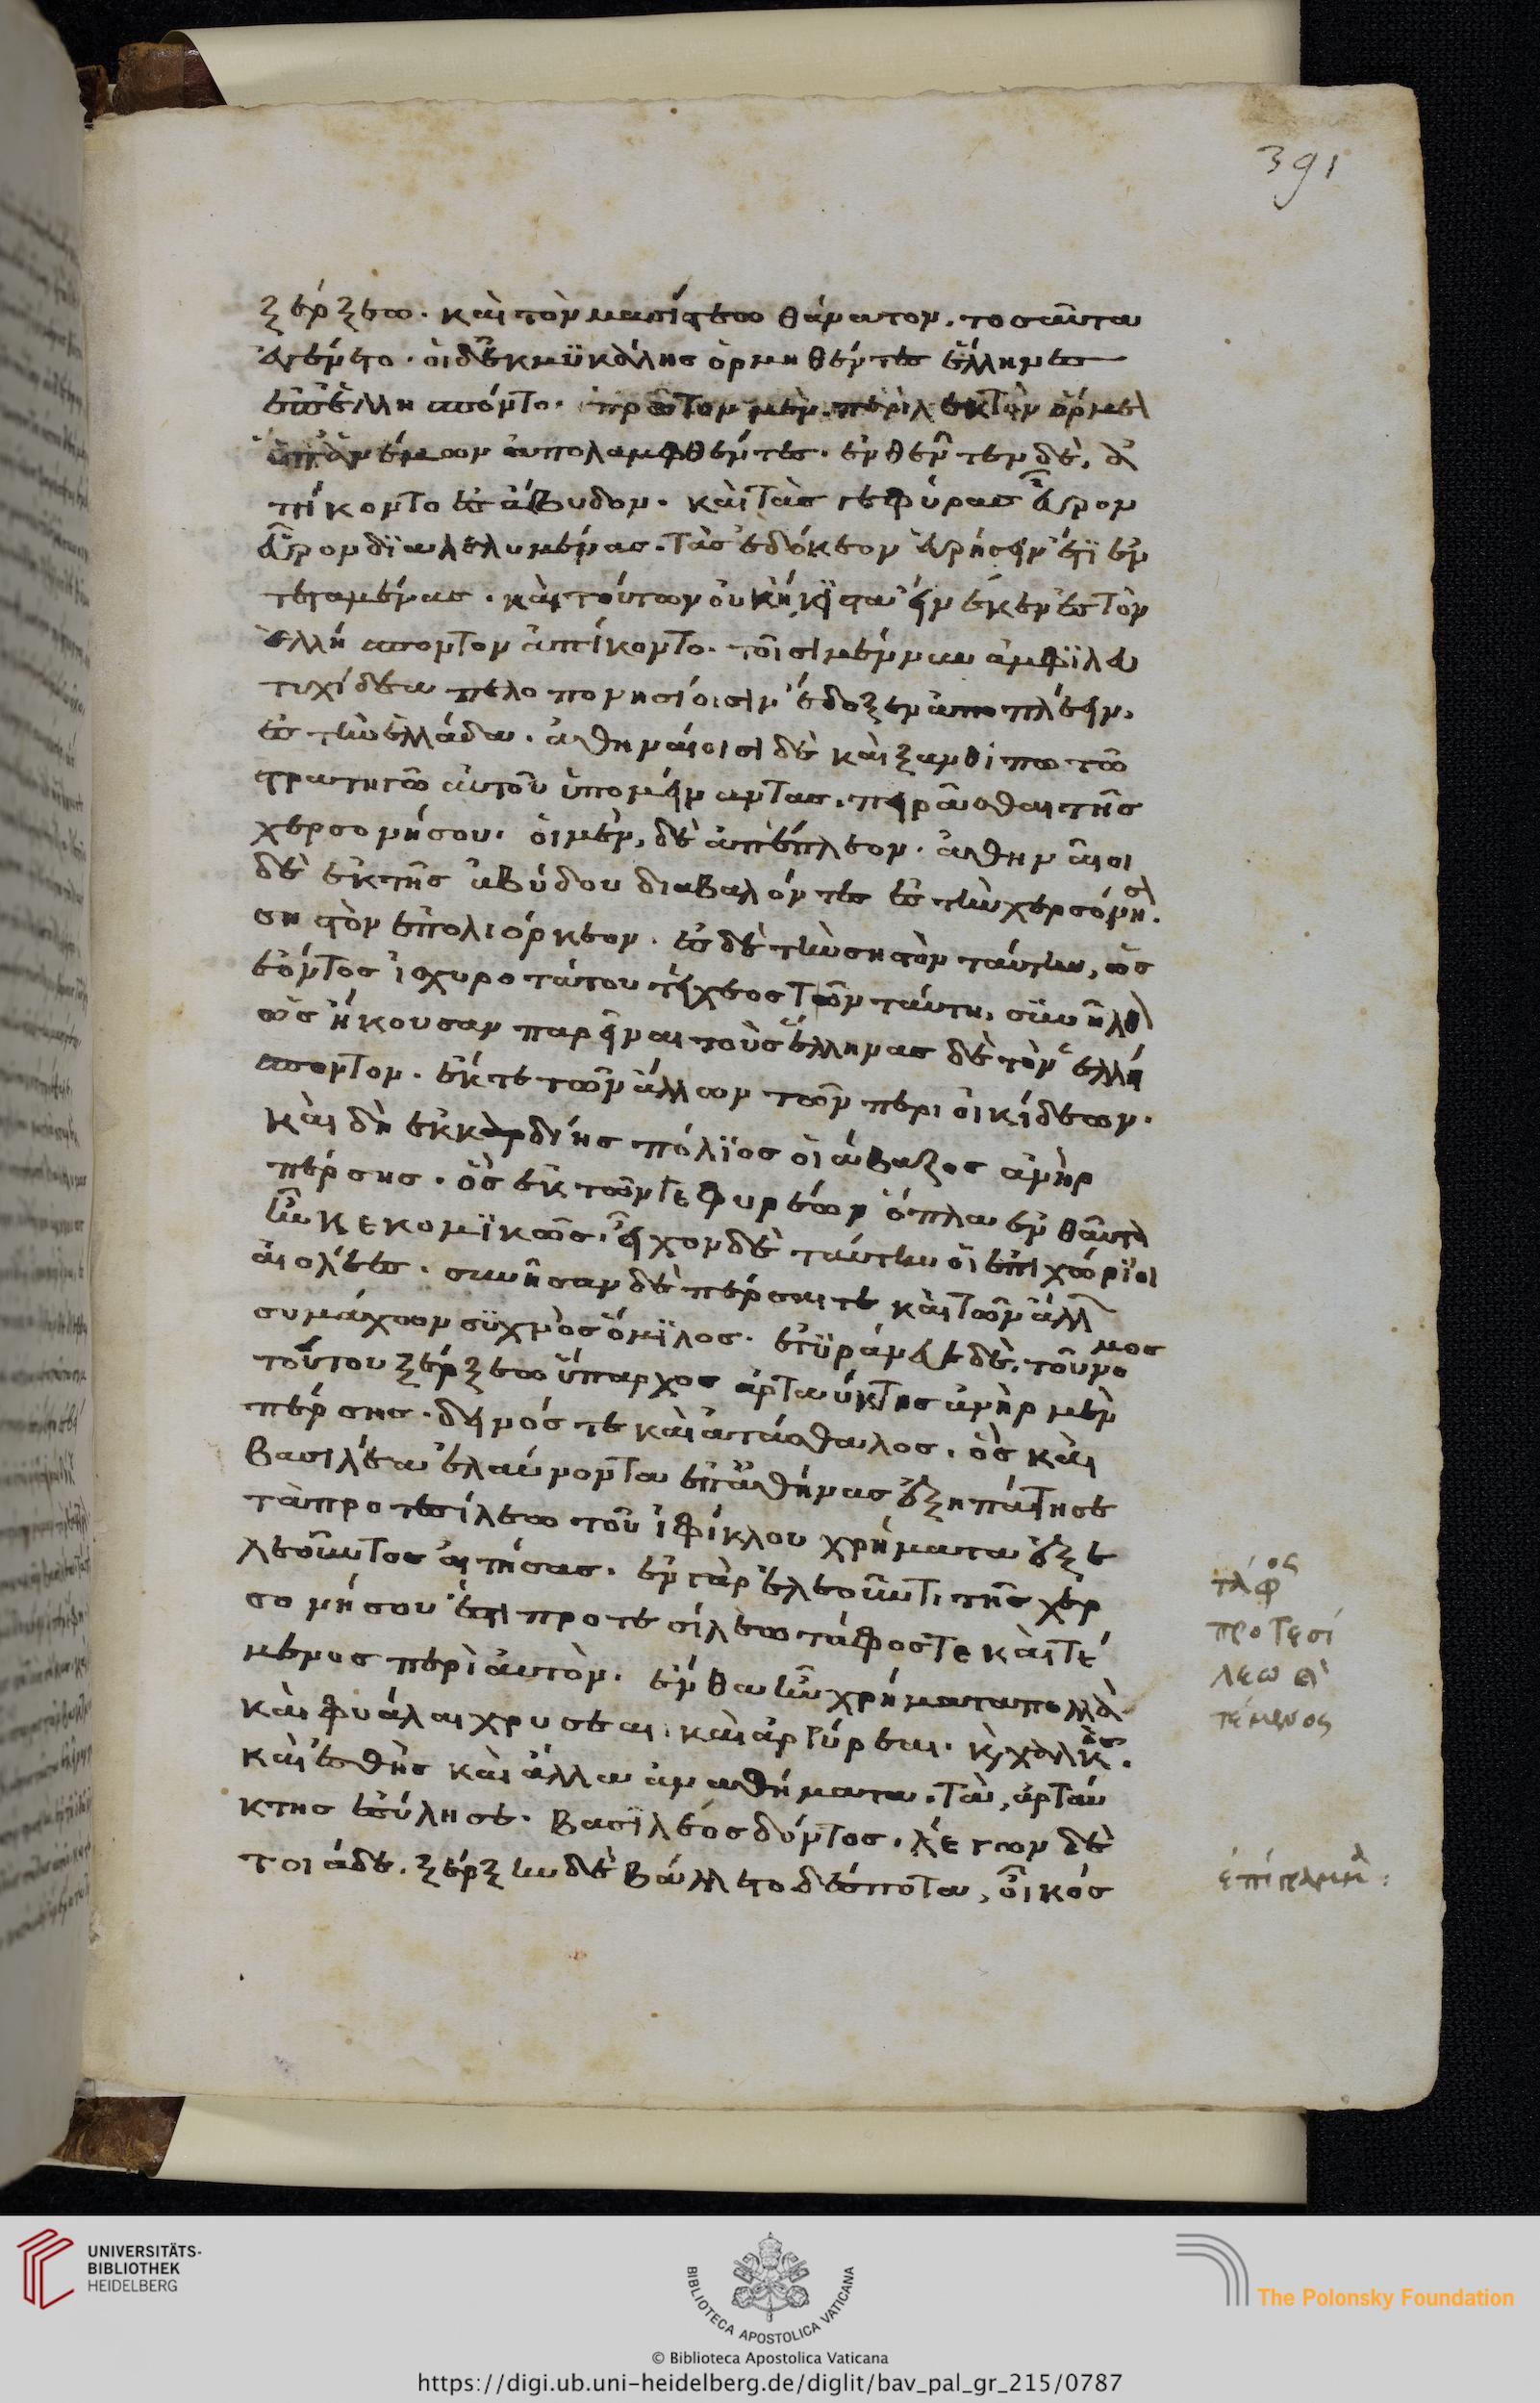 391
ξέρξεω. καὶ τὸν μασίστεω θάνατον. τοσαῦτα
ἐγένετο. οἱ δ' ἐκ μϋκάλης ὁρμηθέντες ἕλληνες
ἐπ' ἑλλησπόντο. πρῶτον μὲν. περὶ λεκτὸν ὅρμε
ὑπ' ἀνέμων ἀπολαμφθέντες. ἐνθεῦτεν δὲ, ἀ
πίκοντο ἐς ἄβυδον. καὶ τὰς γεφύρας εὗρον
εὗρον δϊαλελυμένας. τὰς ἐδόκεον εὑρήσειν ἔτϊ ἐν
τεταμένας. καὶ τούτων οὐκ ἥκϊστα εἵνεκεν ἐς τὸν
ἑλλήσποντον ἀπίκοντο. τοῖσι μέν νυν ἀμφὶ λευ
τυχίδεα πελοποννησίοισιν ἔδοξεν ἀποπλέειν.
ἐς τὴν ἑλλάδα. ἀθηναίοισι δὲ καὶ ξανθίπω τῶ
στρατηγῶ αὐτοῦ ὑπομείναντας. πειρᾶσθαι τῆς
χερσονήσου. οἱ μὲν, δὲ ἀπέπλεον. ἀθηναῖοι
δὲ ἐκ τῆς ἀβύδου διαβαλόντες ἐς τὴν χερσόνησ.
σηστὸν ἐπολιόρκεον. ἐς δὲ τὴν σηστὸν ταύτην, ὡς
ἐόντος ἰσχυροτάτου τείχεος τῶν ταύτη. συνῆλθ
ὡς ἤκουσαν παρεῖναι τοὺς ἕλληνας δὲ τὸν ἑλλή
σποντον. ἔκ τε τῶν ἄλλων τῶν περιοικίδεων.
καὶ δὴ ἐκ καρδίης πόλϊος οἰόβαζος ἀνὴρ
πέρσης. ὃς ἐκ τῶν γεφυρέων ὅπλα ἐνθαῦτα
ἦν κεκομϊκώς. εἶχον δὲ ταύτην οἱ ἐπιχώρϊοι
αἰολέες. συνῆσαν δὲ πέρσαι τε καὶ τῶν ἄλλ
συμάχων συχνὸς ὅμϊλος. ἐτϋράννευε δὲ. τοῦ νο
μοσ
τούτου ξέρξεω ὕπαρχος ἀρταΰκτης ἀνὴρ μὲν
πέρσης. δεινός τε καὶ ἀτάσθαλος. ὃς καὶ
βασιλέα ἐλαύνοντα ἐπ' ἀθήνας ἐξηπάτησε
τὰ πρωτεσίλεω τοῦ ἰφίκλου χρήματα ἐξ ἐ
λεοῦντος αἰτήσας. ἐν γὰρ ἐλεοῦντι τῆς χερ
σονήσου ἐστι προτεσίλεω τάφος τε καὶ τέ
μενος περὶ αὐτὸν. ἔνθα ἦν χρήματα πολλὰ
καὶ φιάλαι χρυσεαι. καὶ ἀργύρεαι. κ χαλκὸς.
καὶ ἐσθὴς καὶ ἄλλα ἀναθήματα. τὰ, ἀρταύ
κτης ἐσύλησε. βασϊλέος δόντος. λέγων δὲ
τοιάδε. ξέρξην δὲ βάλλετο δέσποτα, οἶκός
τάφος
προτεσί
λεω
τέμενος
© Biblioteca Apostolica Vaticana
https://digi.ub.uni-heidelberg.de/diglit/bav_pal_gr_215/0787
UNIVERSITÄTS-
BIBLIOTHEK
HEIDELBERG
BIBLIOTECA APOSTOLICA VATICANA
The Polonsky Foundation